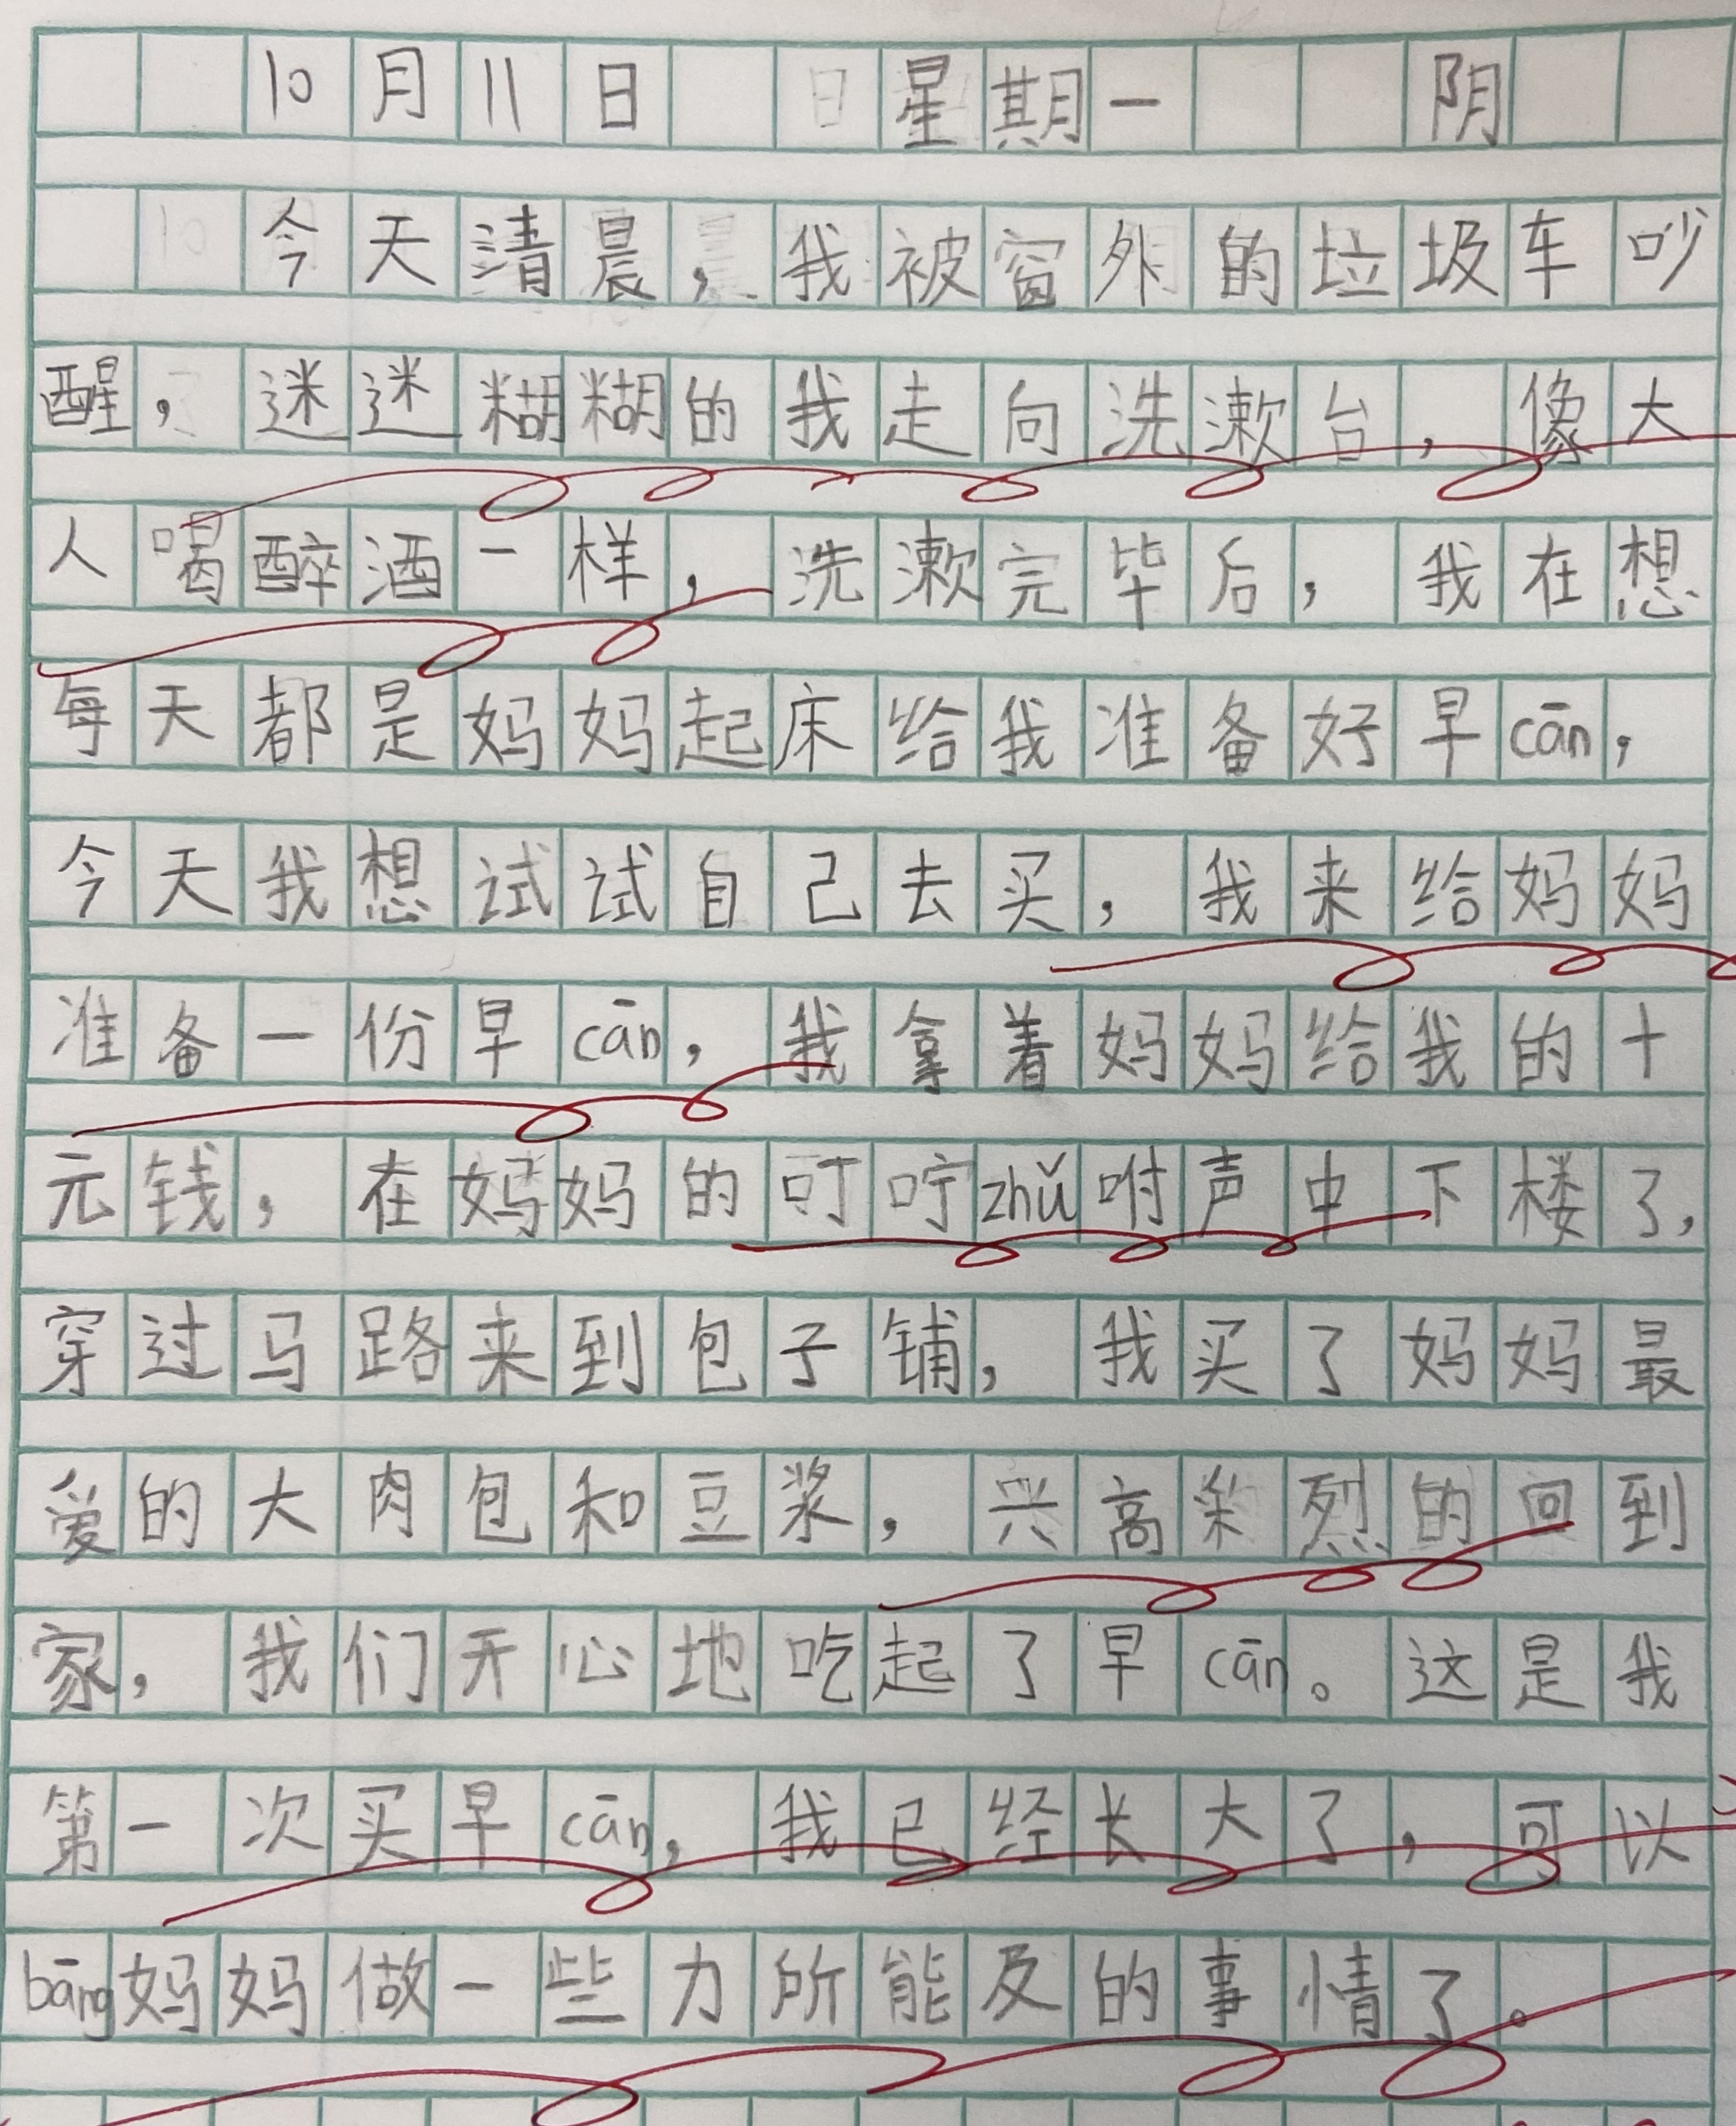 10月11日 星期一 阴
今天清晨，我被窗外的垃圾车吵
醒，迷迷糊糊的我走向洗漱台，像大
人喝醉酒一样，洗漱完毕后，我在想
每天都是妈妈起床给我准备好早cān，
今天我想试试自己去买，我来给妈妈
准备一份早cān，我拿着妈妈给我的十
元钱，在妈妈的叮咛zhǔ咐声中下楼了，
穿过马路来到包子铺，我买了妈妈最
爱的大肉包和豆浆，兴高采烈的回到
家，我们开心地吃起了早cān。这是我
第一次买早cān，我已经长大了，可以
bāng妈妈做一些力所能及的事情了。